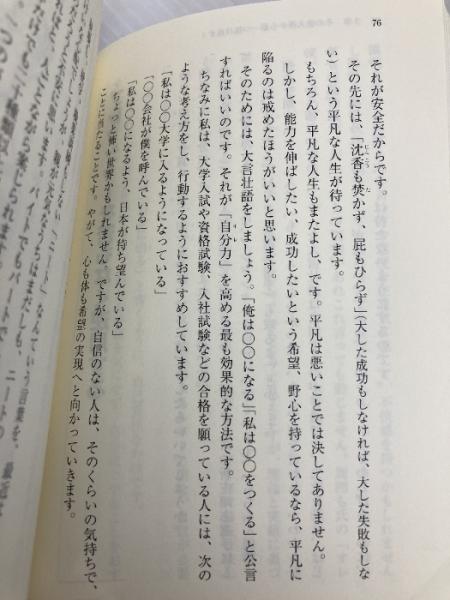 76
それが安全だからです。
その先には、「沈香も焚かず、屁もひらず」（大した成功もしなければ、大した失敗もしな
い）という平凡な人生が待っています。
もちろん、平凡な人生もまたよし、です。平凡は悪いことでは決してありません。
しかし、能力を伸ばしたい、成功したいという希望、野心を持っているなら、平凡に
陥るのは戒めたほうがいいと思います。
そのためには、大言壮語をしましょう。「俺は〇〇になる」「私は〇〇をつくる」と公言
すればいいのです。それが「自分力」を高める最も効果的な方法です。
ちなみに私は、大学入試や資格試験、入社試験などの合格を願っている人には、次の
ような考え方をし、行動するようにおすすめしています。
「私は〇〇大学に入るようになっている」
「〇〇会社が僕を呼んでいる」
「私は〇〇になるよう、日本が待ち望んでいる」
ちょっと怖い世界かもしれません。ですが、自信のない人は、そのくらいの気持ちで、
ことに当たることです。やがて、心も体も希望の実現へと向かっていきます。